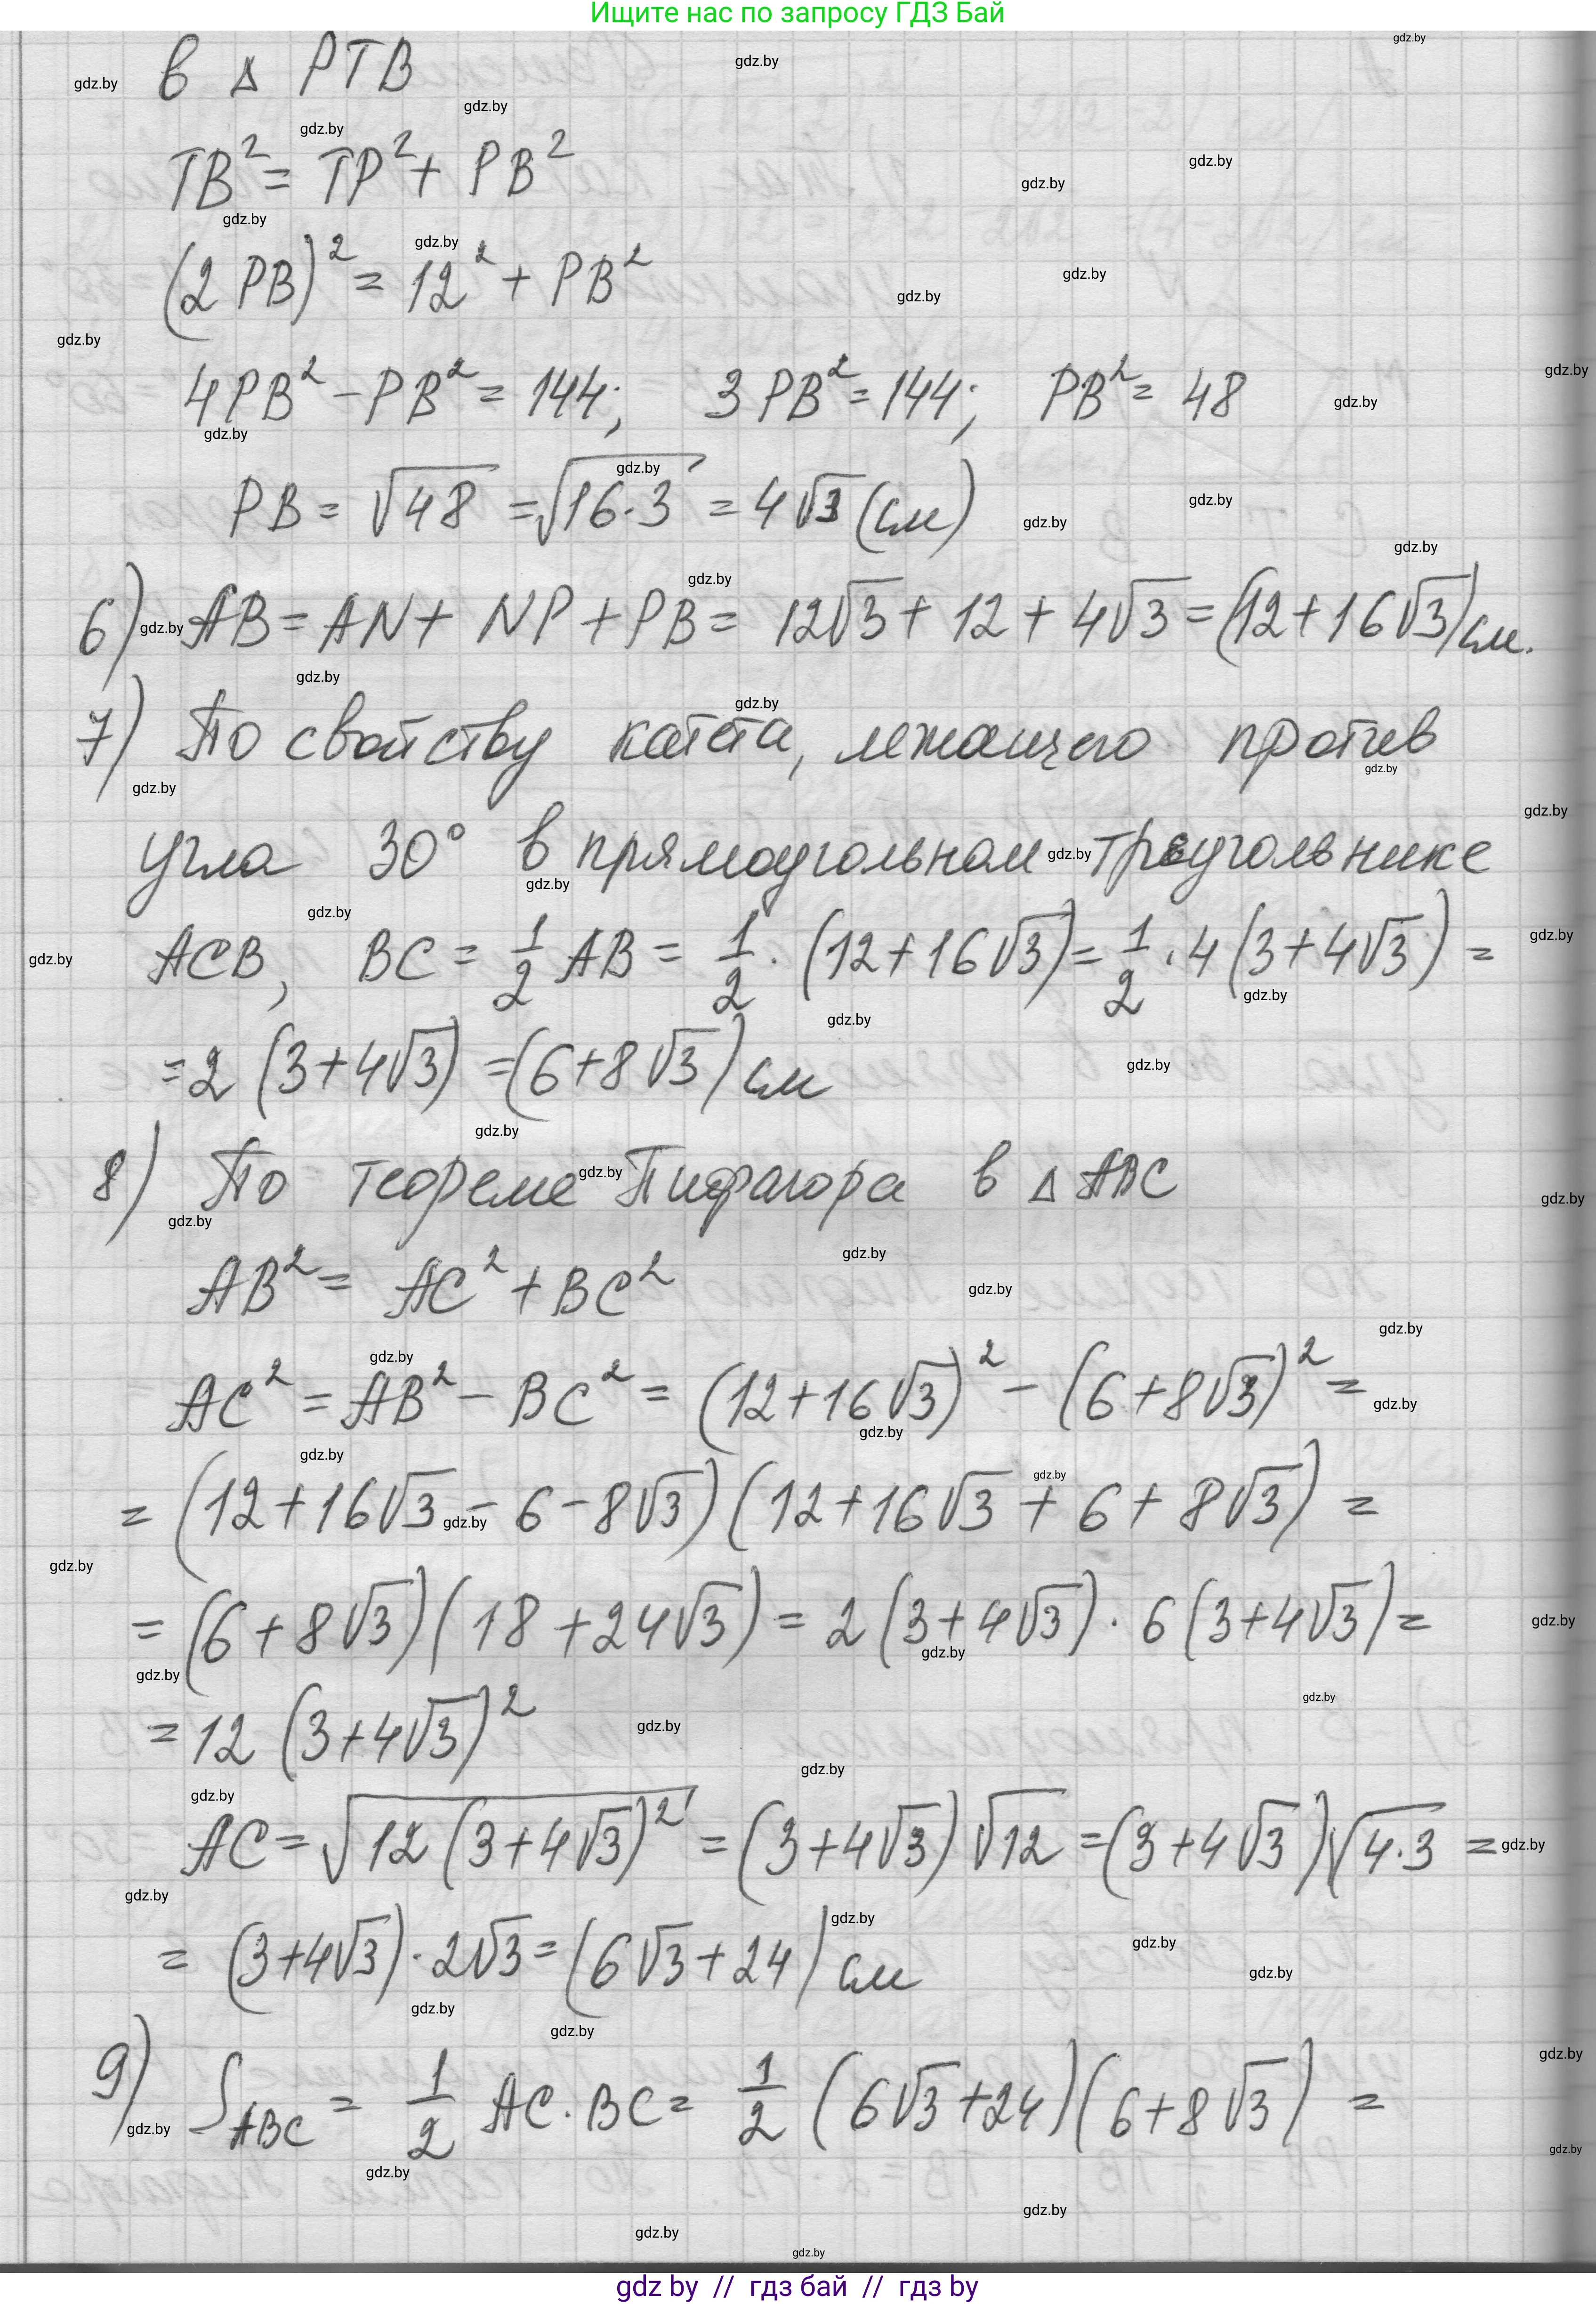 Ищите нас по запросу ГДЗ Бай
в Δ PTB
TB² = TP² + PB²
(2 PB)² = 12² + PB²
4PB² - PB² = 144; 3 PB² = 144; PB² = 48
PB = √48 = √16·3 = 4√3 (см)
6) AB = AN + NP + PB = 12√3 + 12 + 4√3 = (12 + 16√3) см.
7) По свойству катета, лежащего против
угла 30° в прямоугольном треугольнике
ACB, BC = 1/2 AB = 1/2 · (12 + 16√3) = 1/2 · 4 (3 + 4√3) =
= 2 (3 + 4√3) = (6 + 8√3) см
8) По теореме Пифагора в Δ ABC
AB² = AC² + BC²
AC² = AB² - BC² = (12 + 16√3)² - (6 + 8√3)² =
= (12 + 16√3 - 6 - 8√3) (12 + 16√3 + 6 + 8√3) =
= (6 + 8√3) (18 + 24√3) = 2 (3 + 4√3) · 6 (3 + 4√3) =
= 12 (3 + 4√3)²
AC = √12 (3 + 4√3)² = (3 + 4√3) √12 = (3 + 4√3) √4·3 =
= (3 + 4√3) · 2√3 = (6√3 + 24) см
9) S ABC = 1/2 AC · BC = 1/2 (6√3 + 24) (6 + 8√3) =
gdz by // гдз бай // гдз by